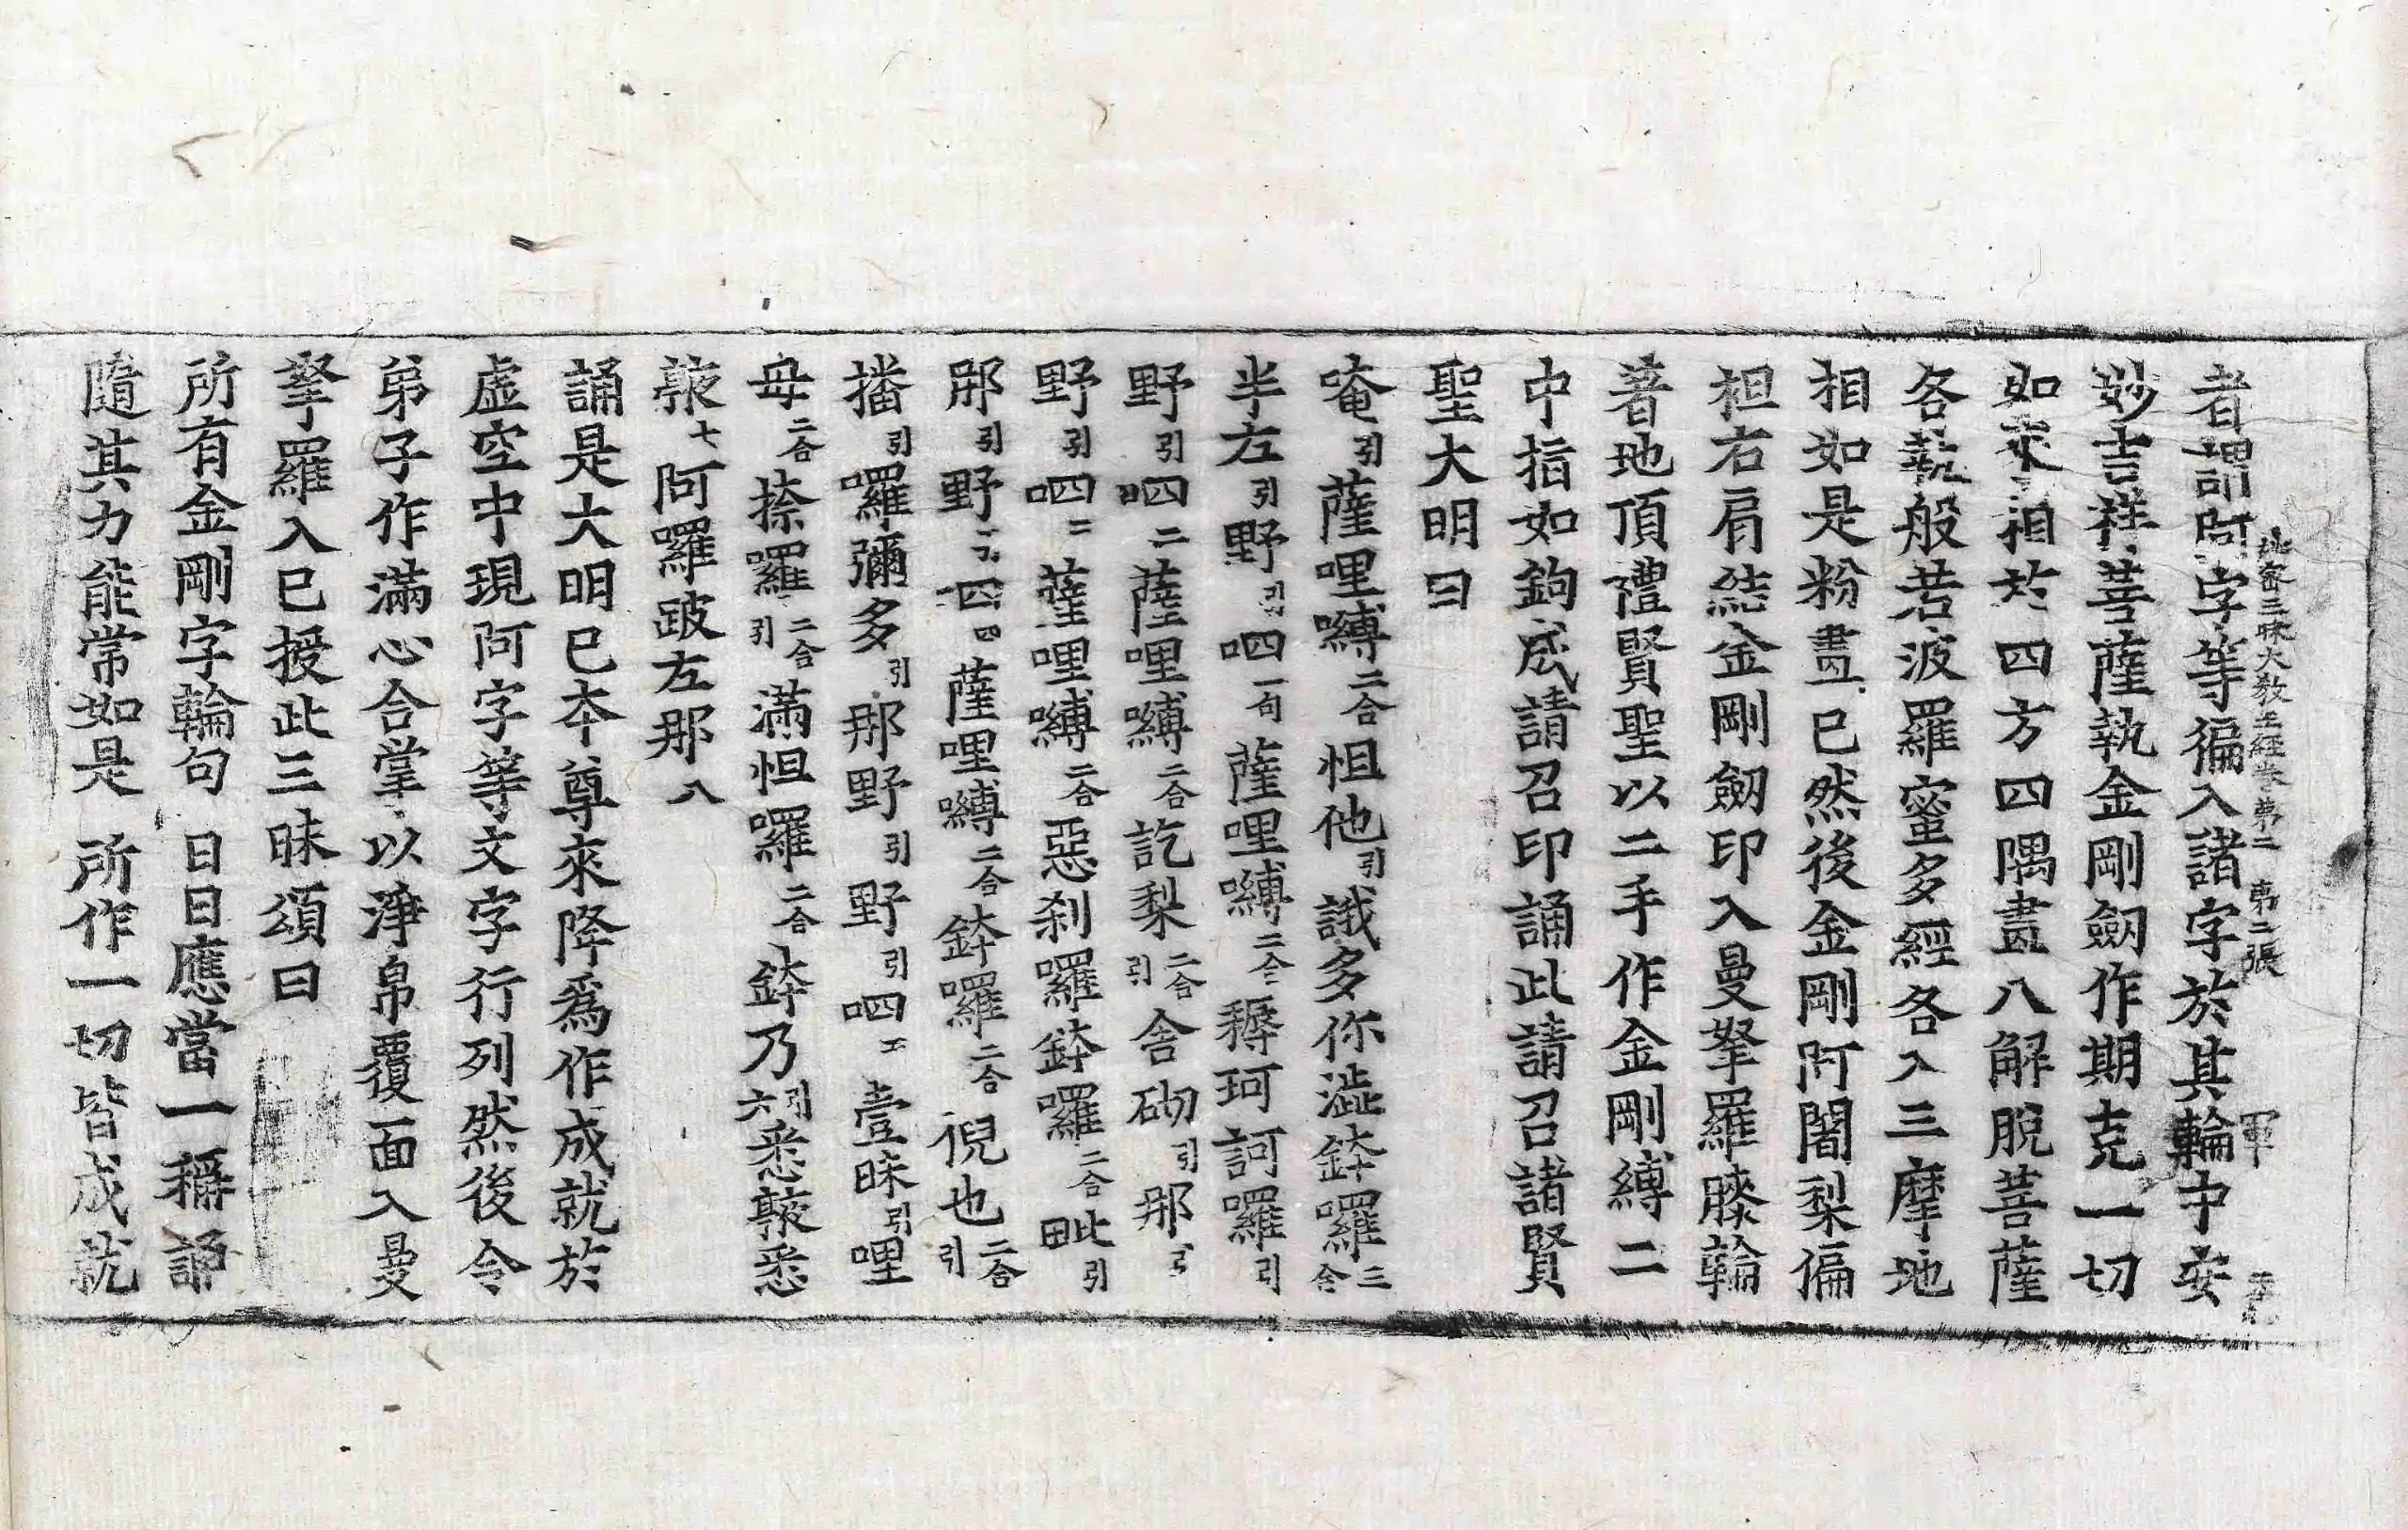 秘密三昧大教王經卷第二 第二張 軍
者謂阿字等徧入諸字於其輪中安
妙吉祥菩薩執金剛劒作期克一切
如來相於四方四隅畫八解脫菩薩
各執般若波羅蜜多經各入三摩地
相如是粉畫已然後金剛阿闍梨偏
袒右肩結金剛劒印入曼拏羅膝輪
著地頂禮賢聖以二手作金剛縛二
中指如鉤成請召印誦此請召諸賢
聖大明曰
唵引薩哩嚩二合怛他引誐多你澁鉢囉三合
半左引野引呬一句薩哩嚩二合穪珂訶囉引
野引呬二薩哩嚩二合訖梨二合引舍砌引那引
野引呬三薩哩嚩二合惡刹囉鉢囉二合毗引
那引野引呬四薩哩嚩二合鉢囉二合倪也二合引
播引囉彌多引那野引野引呬五壹昧引哩
母二合捺囉二合引滿怛囉二合鉢乃引六悉襏悉
襏七阿囉跛左那八
誦是大明已本尊來降爲作成就於
虛空中現阿字等文字行列然後令
弟子作滿心合掌以淨帛覆面入曼
拏羅入已授此三昧頌曰
所有金剛字輪句 日日應當一稱誦
隨其力能常如是 所作一切皆成就